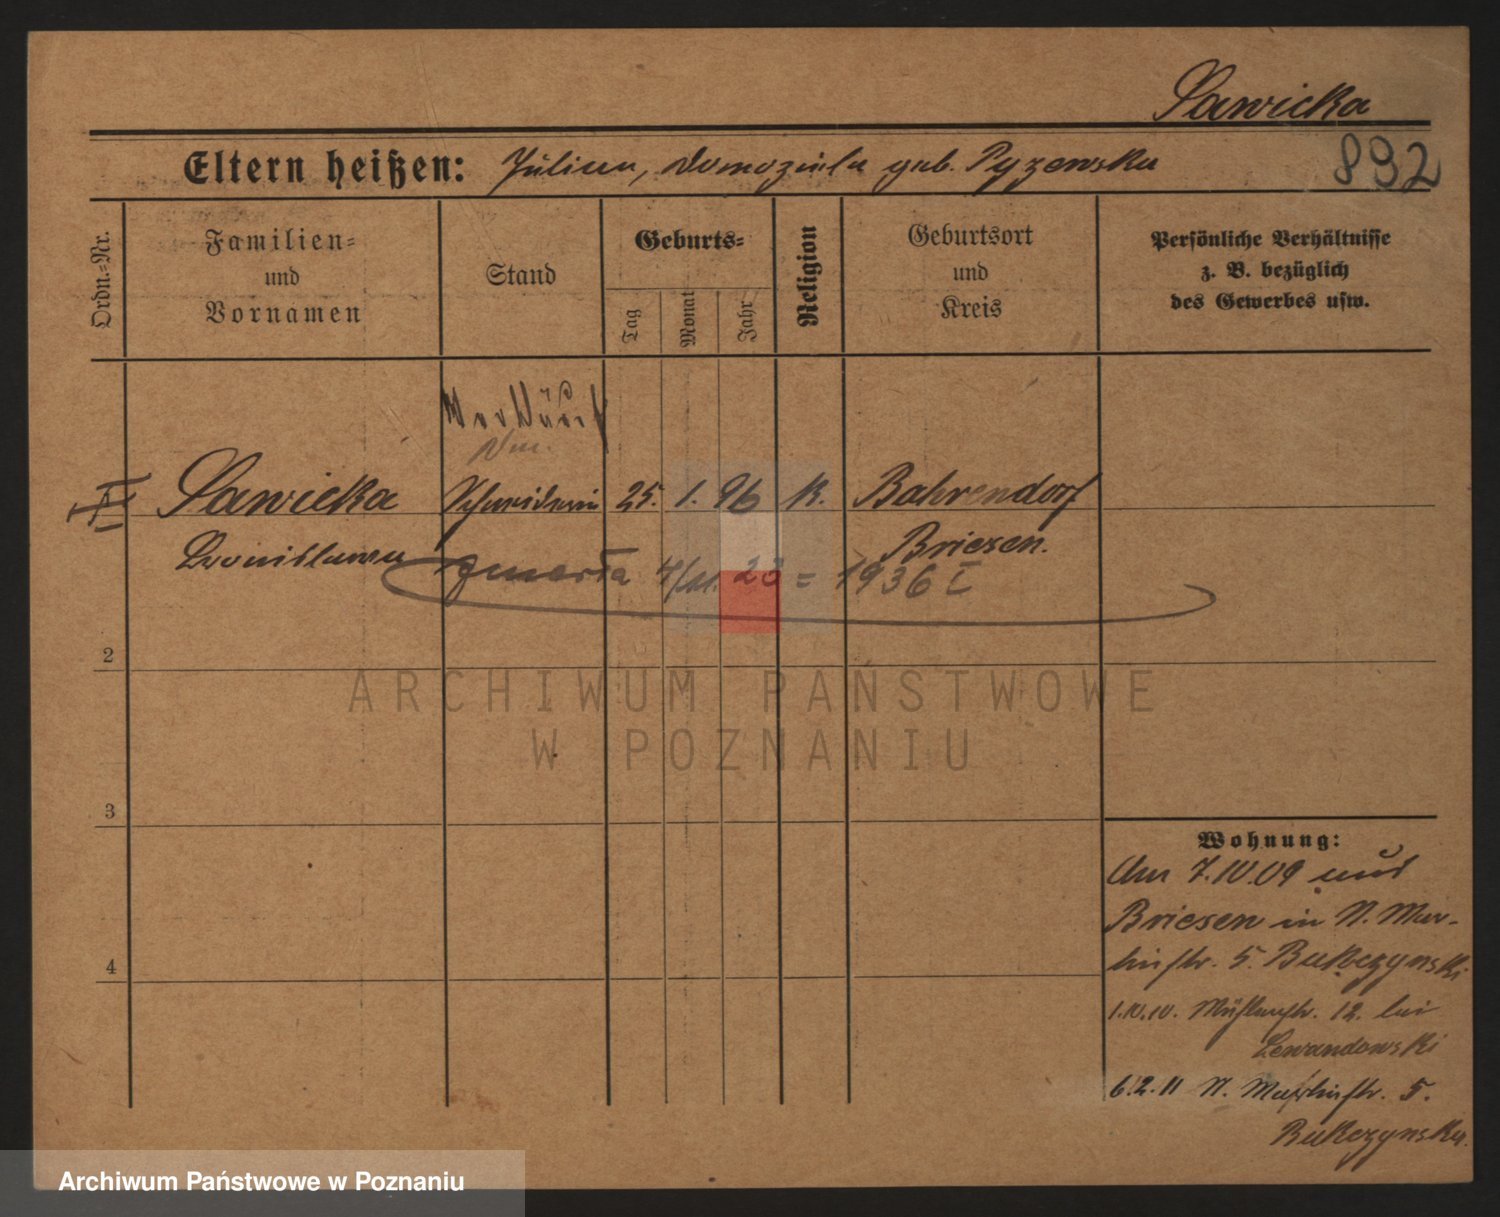 Sawicka
Eltern heißen: Julian, geb. Pyzewska
892
Ordn.-Nr.
Familien-
und
Vornamen
Stand
Geburts-
Tag
Monat
Jahr
Religion
Geburtsort
und
Kreis
Persönliche Verhältnisse
z. B. bezüglich
des Gewerbes usw.
Sawicka
Schneiderin
25. 1. 96
K.
Bahrendorf
Bronislawa
Briesen.
zmarła 23 = 1936 I
2
3
4
Wohnung:
Am 7.10.09 aus
Briesen in N. Mar-
tinstr. 5. Bukczynski
1.10.10. Mühlenstr. 12. bei
Lewandowski
6.2.11 N. Martinstr. 5.
Bukczynska.
ARCHIWUM PAŃSTWOWE
W POZNANIU
Archiwum Państwowe w Poznaniu